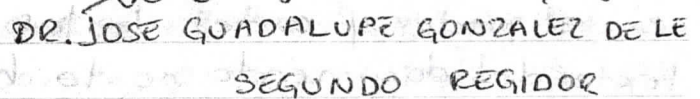 DR. JOSE GUADALUPE GONZALEZ DE LE
SEGUNDO REGIDOR